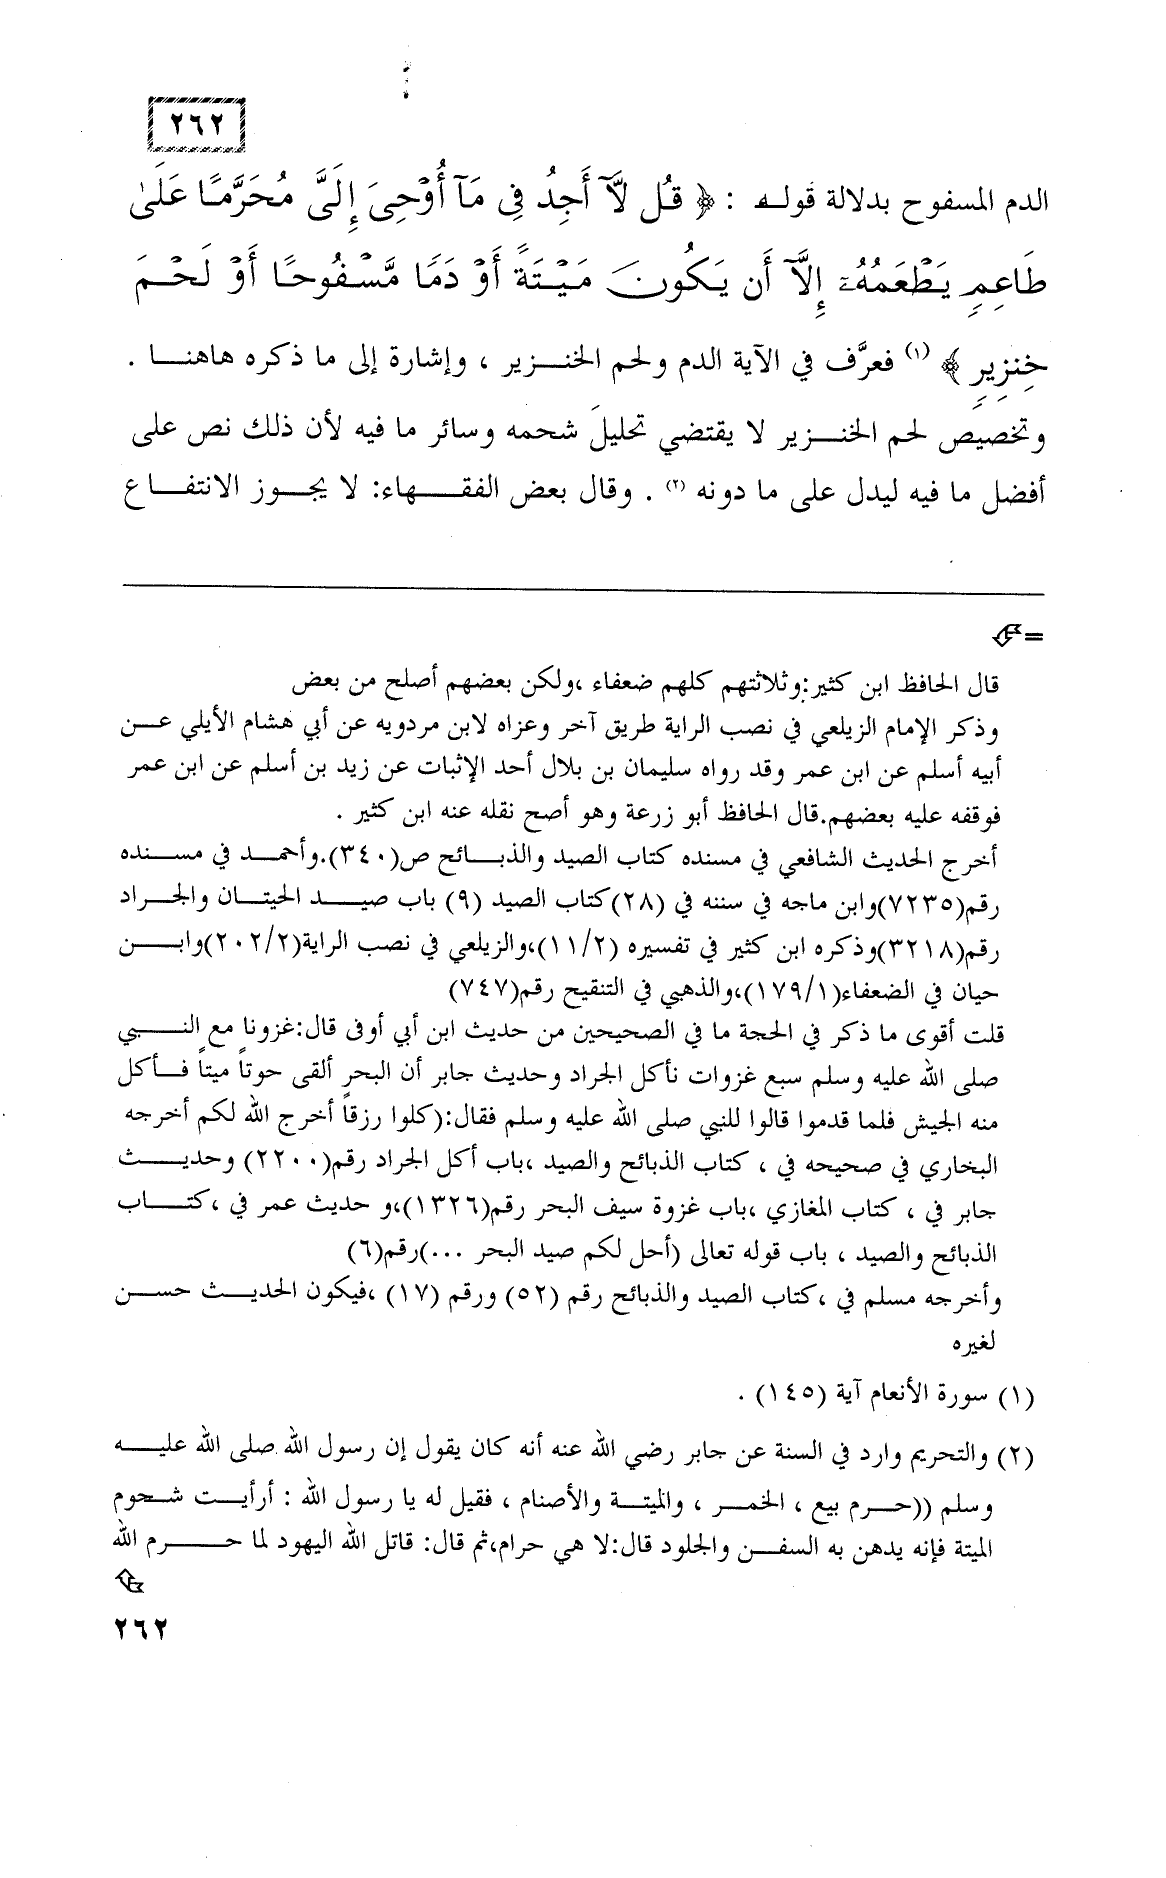 ٢٦٢
الدم المسفوح بدلالة قوله : ﴿ قُل لَّآ أَجِدُ فِى مَآ أُوْحِىَ إِلَىَّ مُحَرَّمًا عَلَىٰ
طَاعِمٍ يَطْعَمُهُۥٓ إِلَّآ أَن يَكُونَ مَيْتَةً أَوْ دَمًا مَّسْفُوحًا أَوْ لَحْمَ
خِنزِيرٍ ﴾ (١) فعرَّف في الآية الدم ولحم الخنزير ، وإشارة إلى ما ذكره هاهنا .
وتخصيص لحم الخنزير لا يقتضي تحليلَ شحمه وسائر ما فيه لأن ذلك نص على
أفضل ما فيه ليدل على ما دونه (٢) . وقال بعض الفقهاء: لا يجوز الانتفاع
=
قال الحافظ ابن كثير:وثلاثتهم كلهم ضعفاء ،ولكن بعضهم أصلح من بعض
وذكر الإمام الزيلعي في نصب الراية طريق آخر وعزاه لابن مردويه عن أبي هشام الأيلي عن
أبيه أسلم عن ابن عمر وقد رواه سليمان بن بلال أحد الإثبات عن زيد بن أسلم عن ابن عمر
فوقفه عليه بعضهم.قال الحافظ أبو زرعة وهو أصح نقله عنه ابن كثير .
أخرج الحديث الشافعي في مسنده كتاب الصيد والذبائح ص(٣٤٠).وأحمد في مسنده
رقم(٧٢٣٥)وابن ماجه في سننه في (٢٨)كتاب الصيد (٩) باب صيد الحيتان والجراد
رقم(٣٢١٨)وذكره ابن كثير في تفسيره (١١/٢)،والزيلعي في نصب الراية(٢٠٢/٢)وابن
حيان في الضعفاء(١٧٩/١)،والذهبي في التنقيح رقم(٧٤٧)
قلت أقوى ما ذكر في الحجة ما في الصحيحين من حديث ابن أبي أوفى قال:غزونا مع النبي
صلى الله عليه وسلم سبع غزوات نأكل الجراد وحديث جابر أن البحر ألقى حوتاً ميتاً فأكل
منه الجيش فلما قدموا قالوا للنبي صلى الله عليه وسلم فقال:(كلوا رزقاً أخرج الله لكم أخرجه
البخاري في صحيحه في ، كتاب الذبائح والصيد ،باب أكل الجراد رقم(٢٢٠٠) وحديث
جابر في ، كتاب المغازي ،باب غزوة سيف البحر رقم(١٣٢٦)،و حديث عمر في ،كتاب
الذبائح والصيد ، باب قوله تعالى (أحل لكم صيد البحر ...)رقم(٦)
وأخرجه مسلم في ،كتاب الصيد والذبائح رقم (٥٢) ورقم (١٧) ،فيكون الحديث حسن
لغيره
(١) سورة الأنعام آية (١٤٥) .
(٢) والتحريم وارد في السنة عن جابر رضي الله عنه أنه كان يقول إن رسول الله صلى الله عليه
وسلم ((حرم بيع ، الخمر ، والميتة والأصنام ، فقيل له يا رسول الله : أرأيت شحوم
الميتة فإنه يدهن به السفن والجلود قال:لا هي حرام،ثم قال: قاتل الله اليهود لما حرم الله
٢٦٢